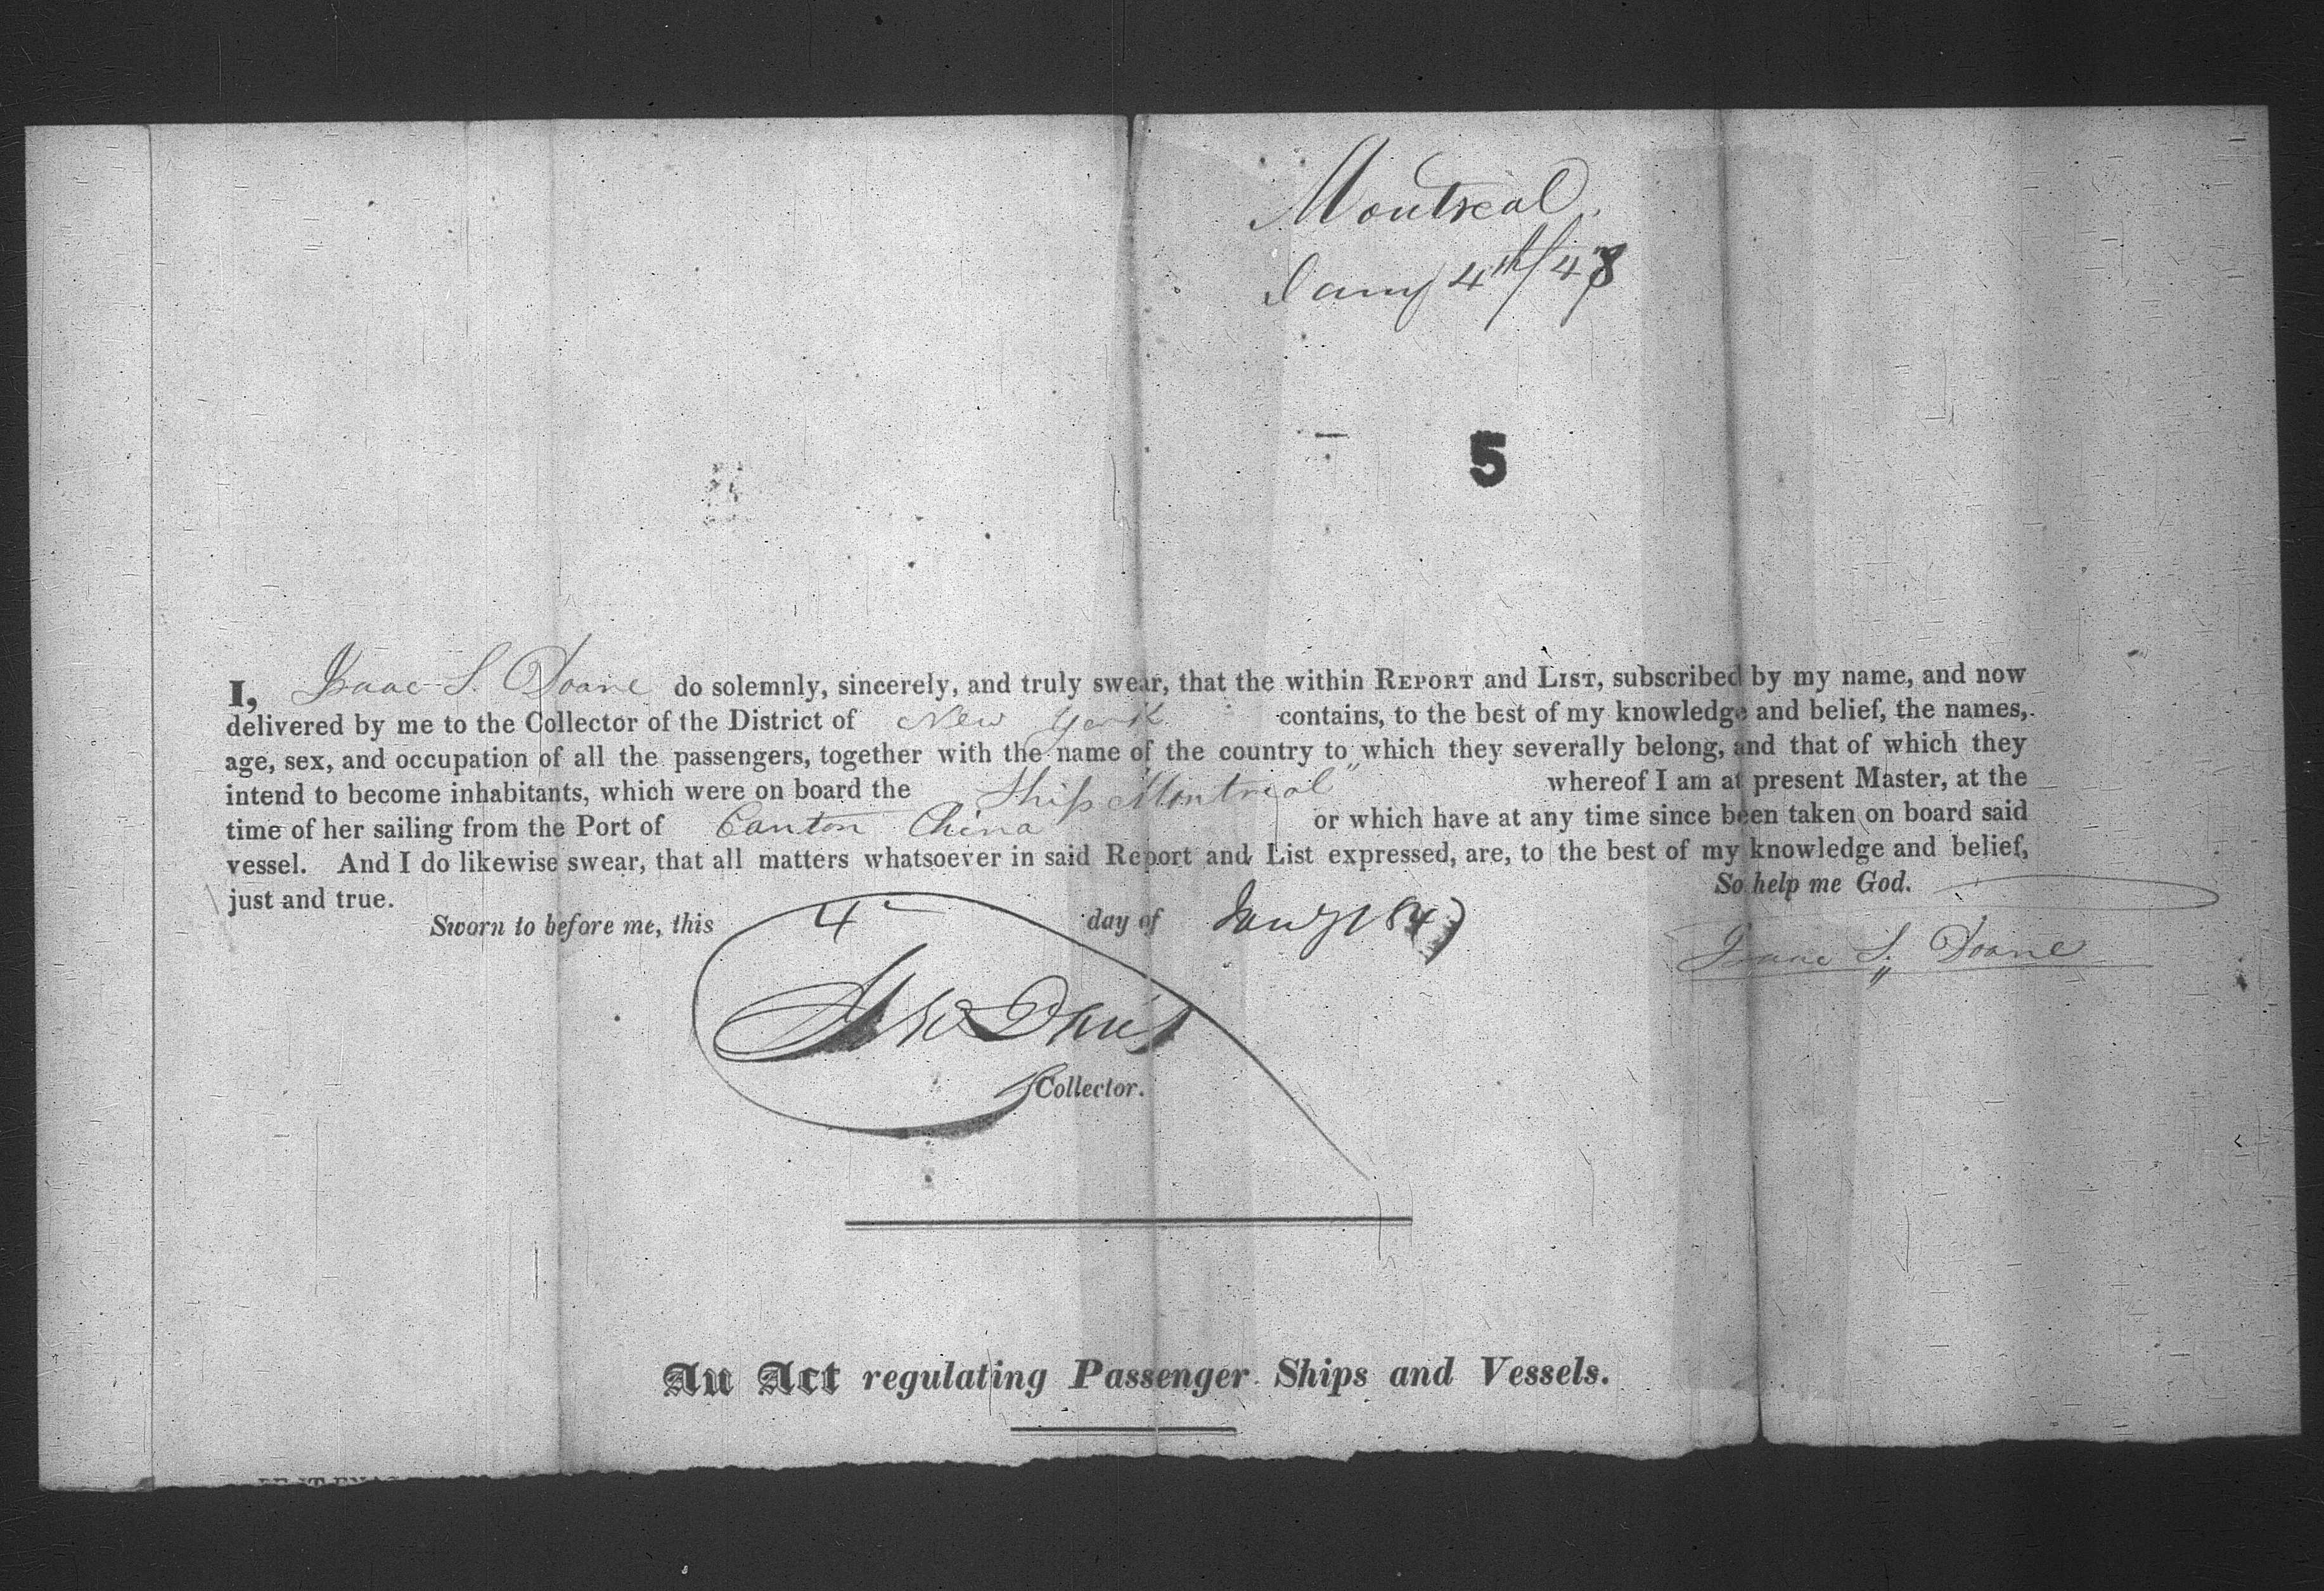 Montreal.
Jany 4th/48
5
I, Isaac S. Doane do solemnly, sincerely, and truly swear, that the within REPORT and LIST, subscribed by my name, and now
delivered by me to the Collector of the District of New York contains, to the best of my knowledge and belief, the names,
age, sex, and occupation of all the passengers, together with the name of the country to which they severally belong, and that of which they
intend to become inhabitants, which were on board the Ship Montreal" whereof I am at present Master, at the
time of her sailing from the Port of Canton China or which have at any time since been taken on board said
vessel. And I do likewise swear, that all matters whatsoever in said Report and List expressed, are, to the best of my knowledge and belief,
just and true. So help me God.
Sworn to before me, this 4 day of Jany 184
Isaac S. Doane
Davis
Collector.
An Act regulating Passenger Ships and Vessels.